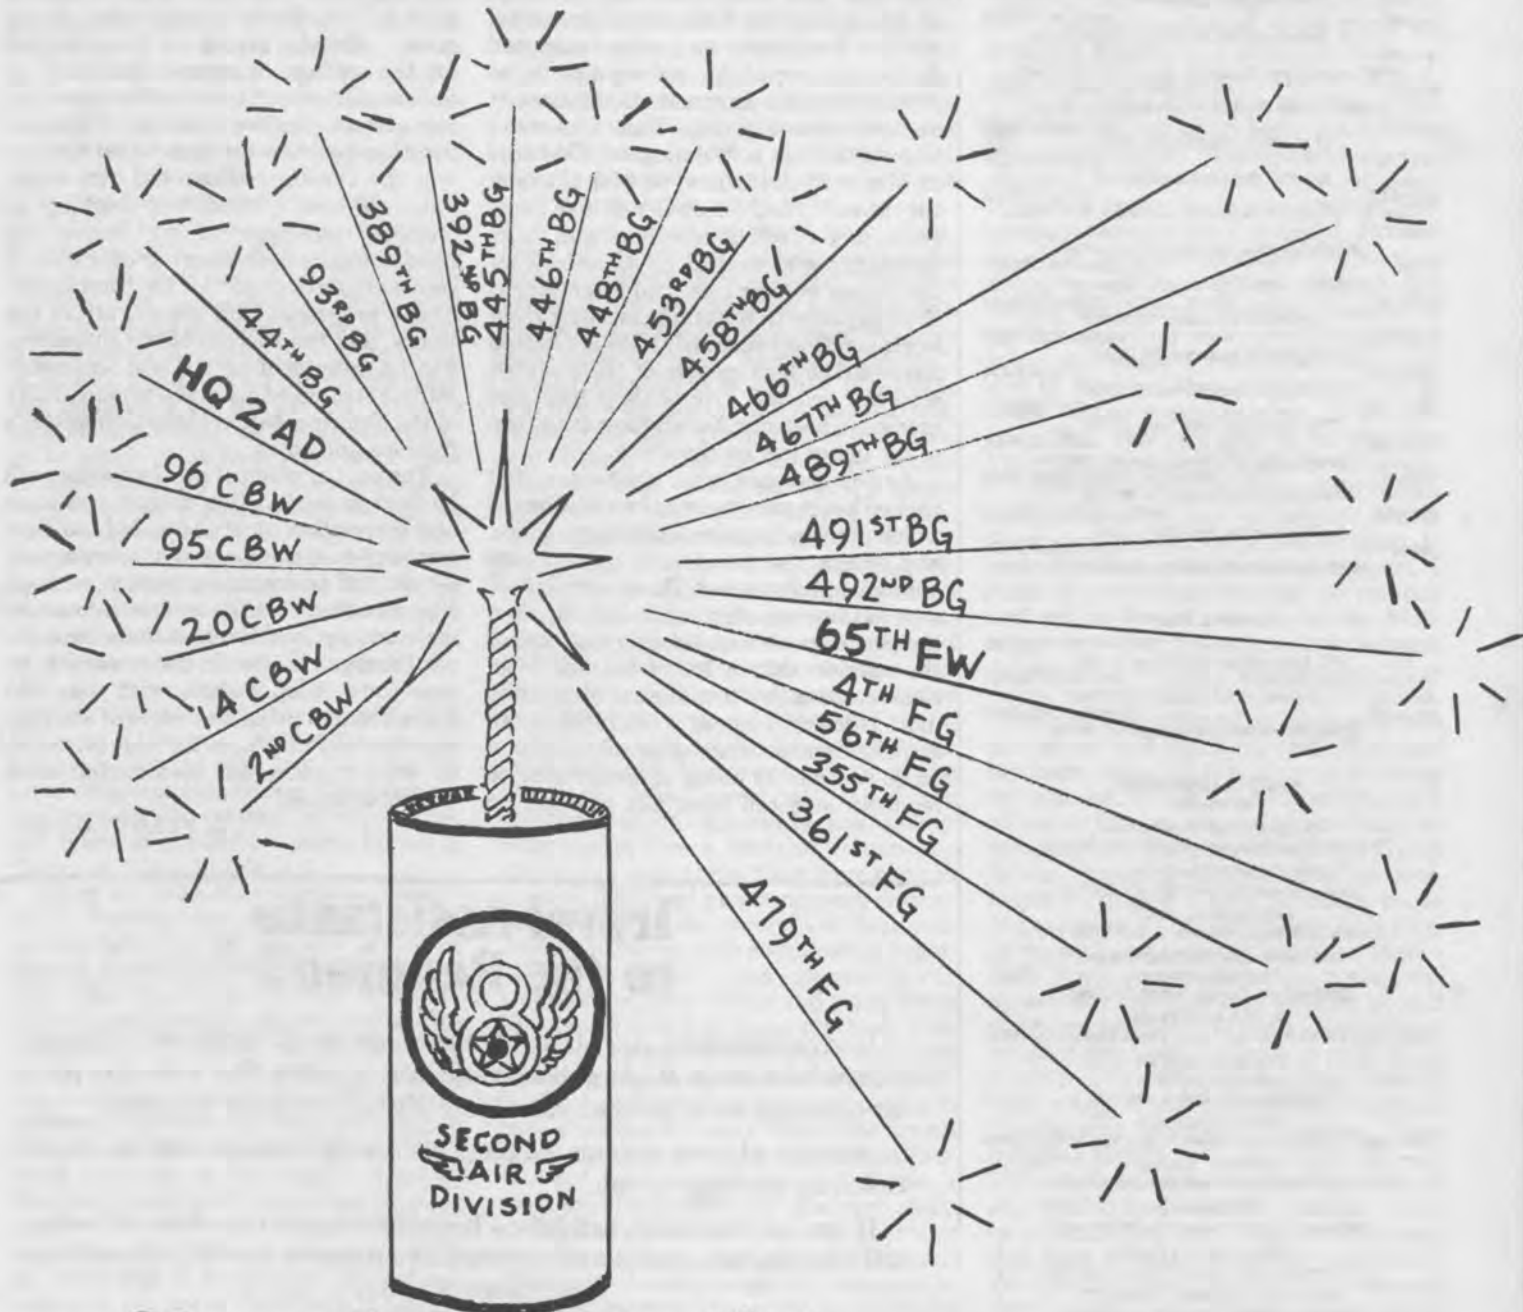 2ND CBW
14 CBW
20 CBW
95 CBW
96 CBW
HQ 2 AD
44TH BG
93RD BG
389TH BG
392ND BG
445TH BG
446TH BG
448TH BG
453RD BG
458TH BG
466TH BG
467TH BG
489TH BG
491ST BG
492ND BG
65TH FW
4TH FG
56TH FG
355TH FG
361ST FG
479TH FG
8
SECOND
AIR
DIVISION